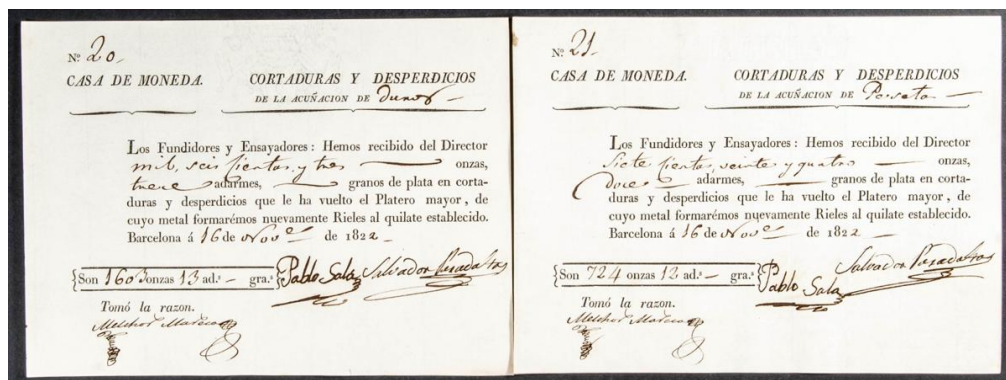 Nº 20
CASA DE MONEDA.
CORTADURAS Y DESPERDICIOS
DE LA ACUÑACION DE Duros
Los Fundidores y Ensayadores: Hemos recibido del Director
mil, seis cientas, y tres onzas,
trece adarmes, granos de plata en corta-
duras y desperdicios que le ha vuelto el Platero mayor, de
cuyo metal formarémos nuevamente Rieles al quilate establecido.
Barcelona á 16 de Nov.e de 1822
Son 1603 onzas 13 ad.s gra.s
Pablo Sala
Salvador
Tomó la razon.
Melchor
Nº 21
CASA DE MONEDA.
CORTADURAS Y DESPERDICIOS
DE LA ACUÑACION DE Pesetas
Los Fundidores y Ensayadores: Hemos recibido del Director
Siete cientas, veinte y quatro onzas,
Doce adarmes, granos de plata en corta-
duras y desperdicios que le ha vuelto el Platero mayor, de
cuyo metal formarémos nuevamente Rieles al quilate establecido.
Barcelona á 16 de Nov.e de 1822
Son 724 onzas 12 ad.s gra.s
Pablo Sala
Salvador
Tomó la razon.
Melchor